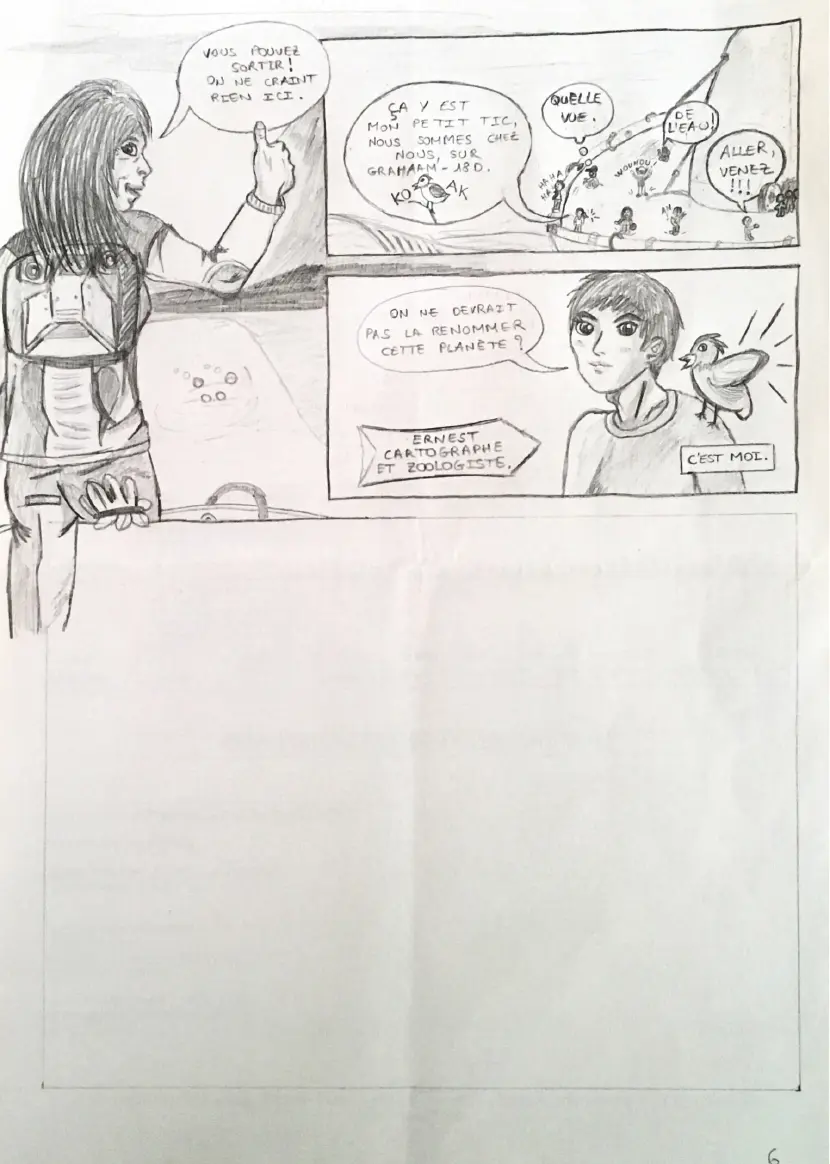 VOUS POUVEZ
SORTIR!
ON NE CRAINT
RIEN ICI.
ÇA Y EST
MON PETIT TIC,
NOUS SOMMES CHEZ
NOUS, SUR
GRAHAAM-18D.
KO AK
QUELLE
VUE.
DE
L'EAU!
ALLER,
VENEZ
!!!
HA HA
HA
WOUHOU!
ON NE DEVRAIT
PAS LA RENOMMER
CETTE PLANÈTE?
ERNEST
CARTOGRAPHE
ET ZOOLOGISTE.
C'EST MOI.
6